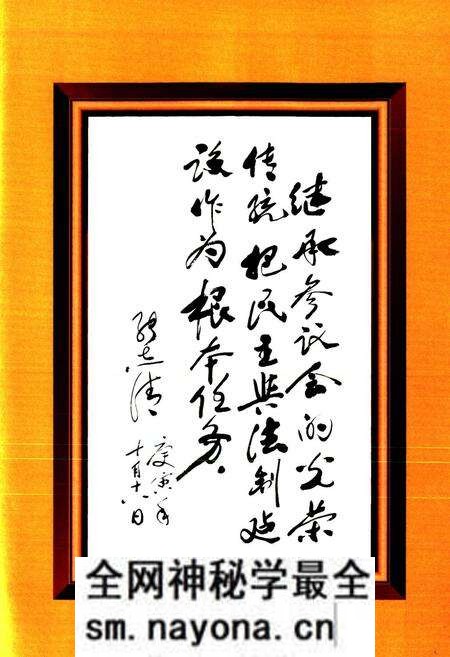 继承参议会的光荣
传统把民主與法制建
设作为根本任务。
庚寅年
全网神秘学最全
sm.nayona.cn